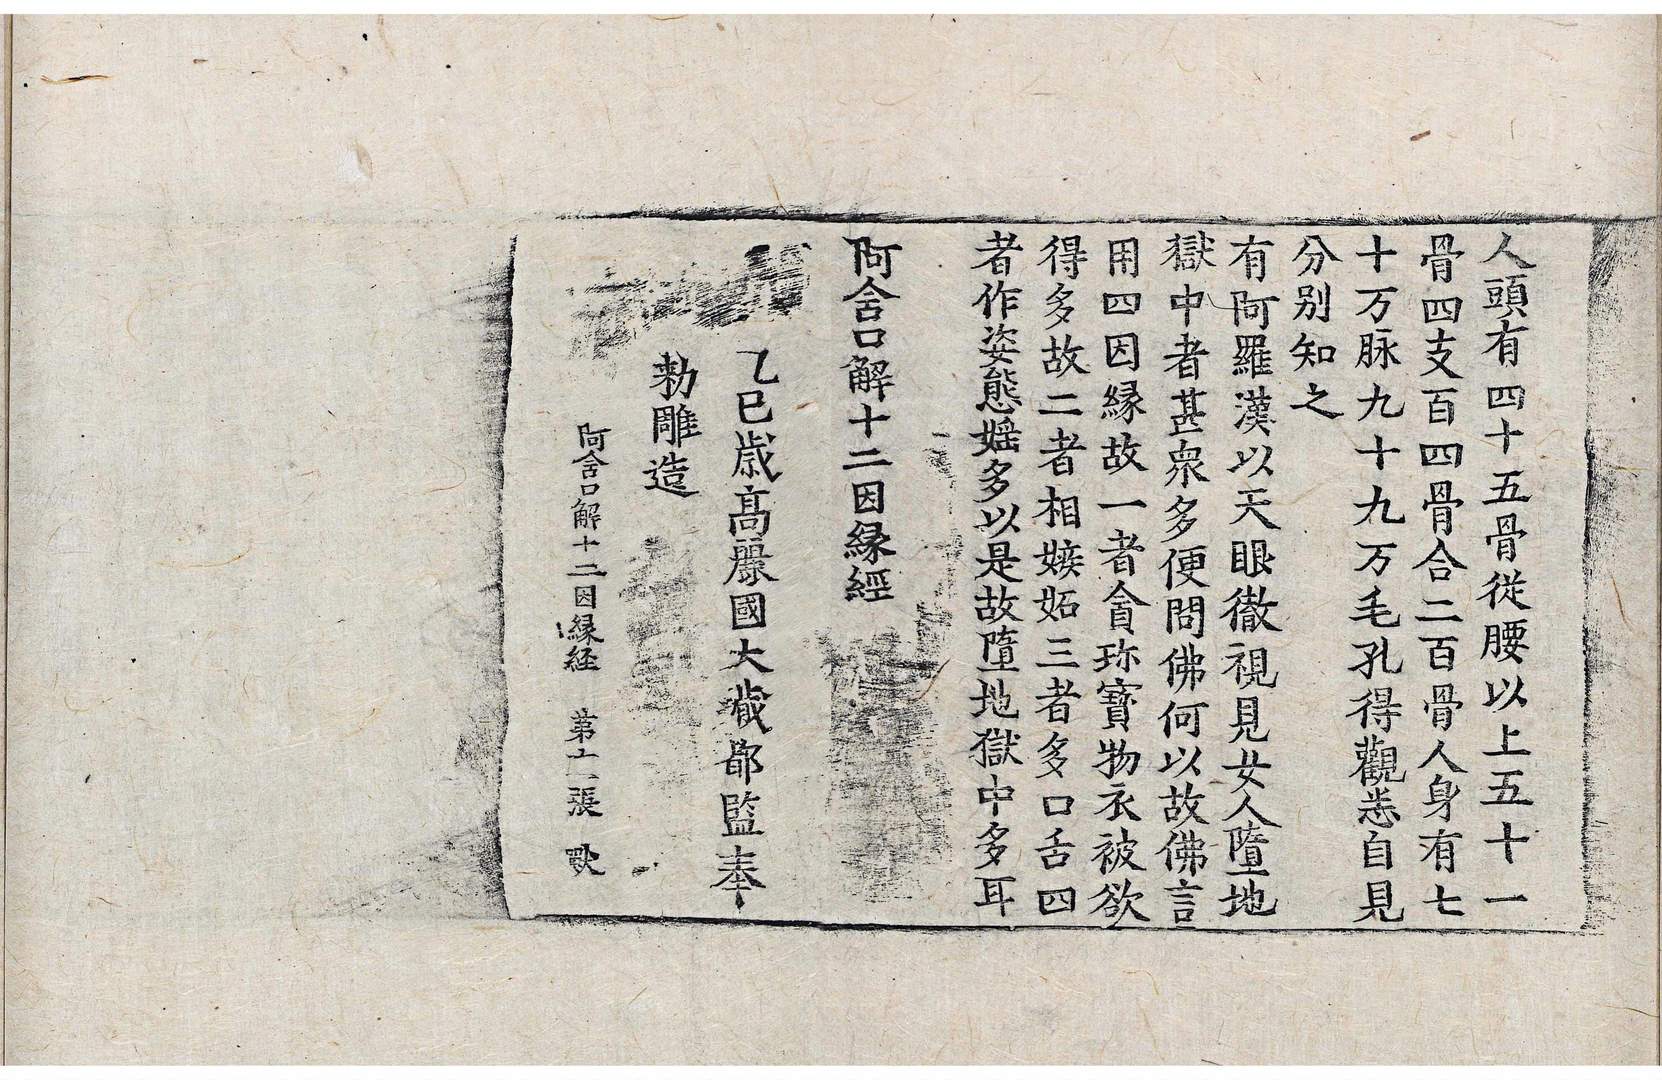 人頭有四十五骨從腰以上五十一
骨四支百四骨合二百骨人身有七
十万脉九十九万毛孔得觀悉自見
分别知之
有阿羅漢以天眼徹視見女人墮地
獄中者甚衆多便問佛何以故佛言
用四因緣故一者貪珎寶物衣被欲
得多故二者相嫉妬三者多口舌四
者作姿態婬多以是故墮地獄中多耳
阿含口解十二因緣經
乙巳歳高麗國大藏都監奉
勅雕造
阿含口解十二因縁経 第十一張 歌